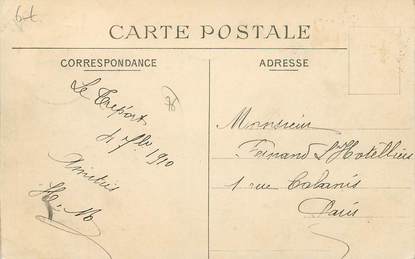 CARTE POSTALE
CORRESPONDANCE
Le Treport
4 7bre 1910
Amitiés
H. M
ADRESSE
Monsieur
Fernand L'Hotellier
1 rue Cabanis
Paris